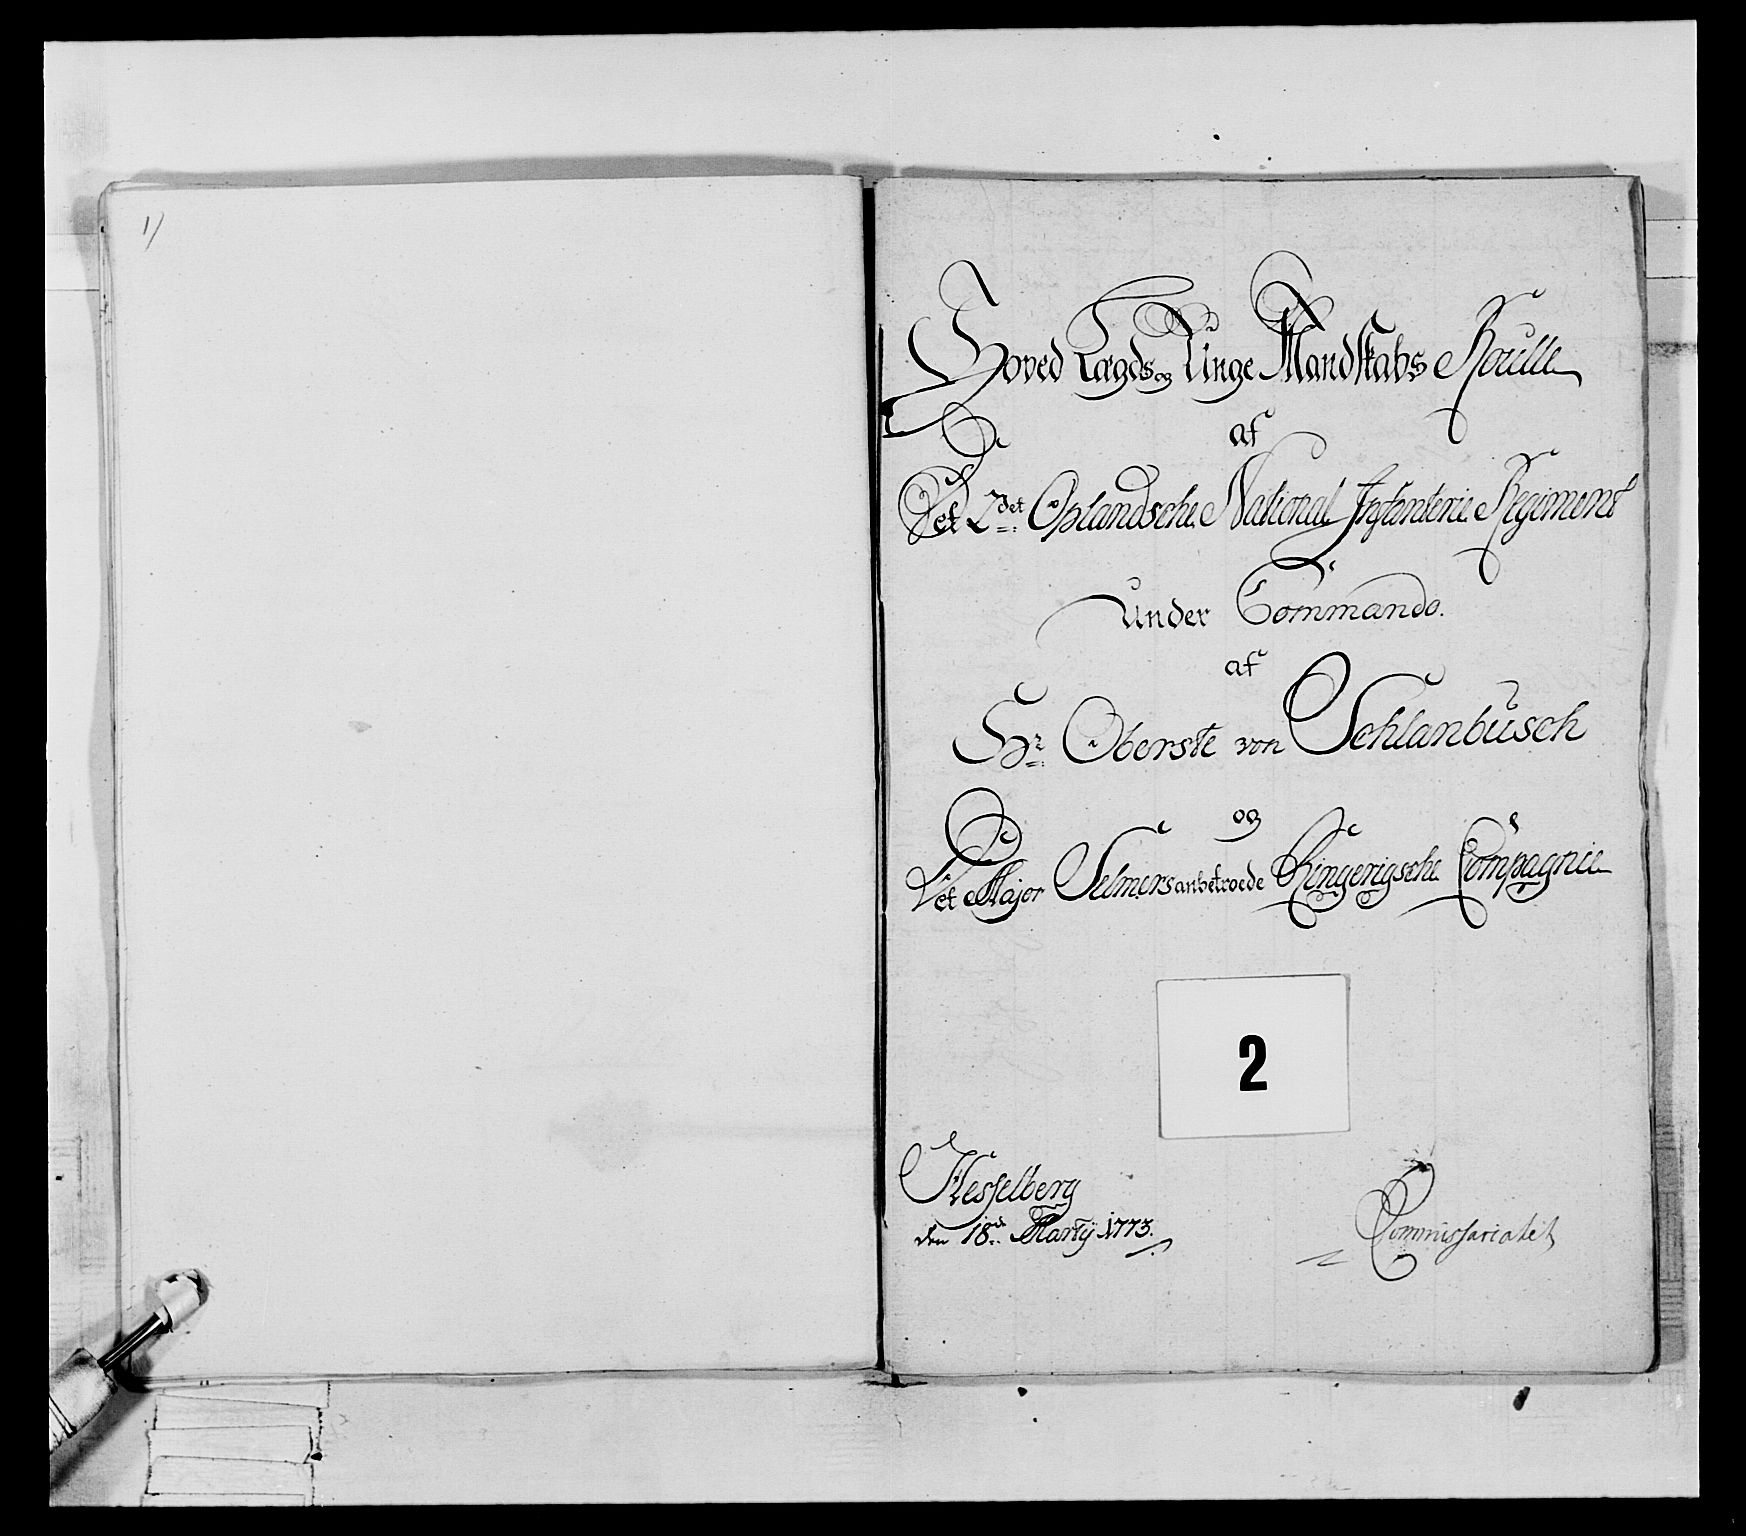 1)
Hoved Lægds og Unge Mandskabs Roulle
af
Det 2det Oplandsche National Infanterie Regiment
under Commando.
af
Hr Oberste von Schlanbusch
og
Det Major Selmers anbetroede Ringerigsche Compagnie
2
Hesselberg
den 18de Martij 1773.
Commissariatet